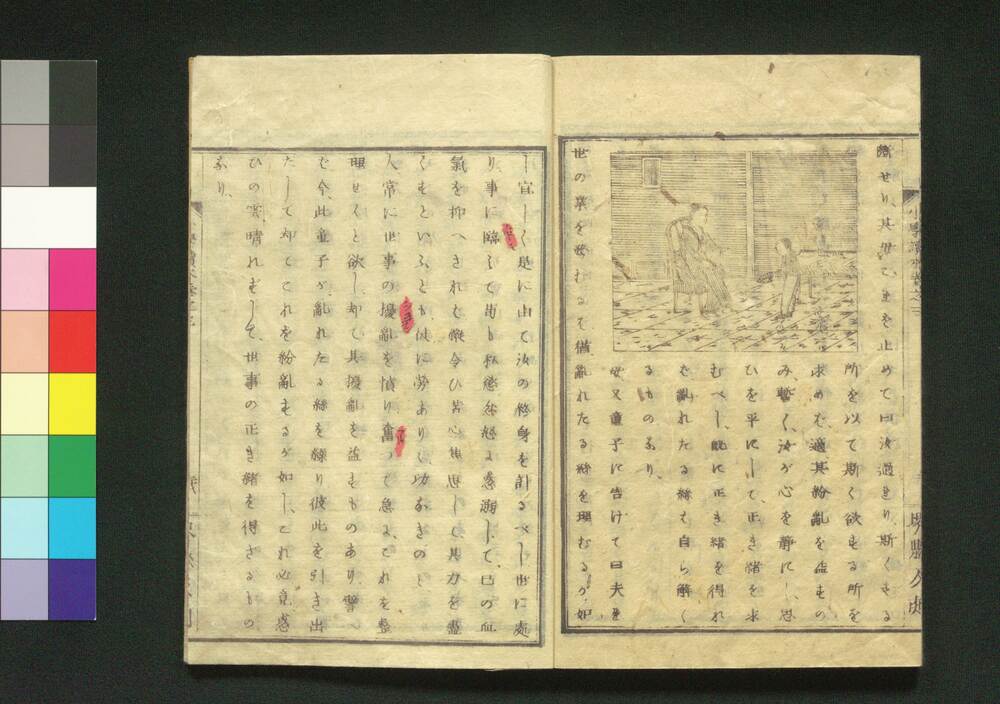 せり、其母てまを止めて曰汝過まり、斯くする
所を以て斯く欲する所を
求めむ、適其紛亂を益すの
み、暫く、汝が心を靜にし、思
ひを平にして、正き緒を求
むべし、既に正き緒を得れ
む亂れたる絲も自ら解く
るものなり、
母又童子に告けて曰夫
世の業を むるて猶亂れたる絲を理むるが如
し宜しく是に由て汝の修身を計るべし世に處
り、事に臨して苟も私慾忿怒 惑溺して、己の血
氣を抑へされむ縱令ひ苦心焦思して、其力を盡
くすといふとも徒に勞ありて功なきのと
人常に世事の擾亂を憤り奮つて急よ、これを整
理せんと欲し、却て其擾亂を益すものあり、譬へ
む今、此童子が亂れたる絲を繰り彼此を引き出
だして却てこれを紛亂するが如し、これ必竟惑
ひの雲、晴れずして、世事の正き緒を得ざるもの
なり、